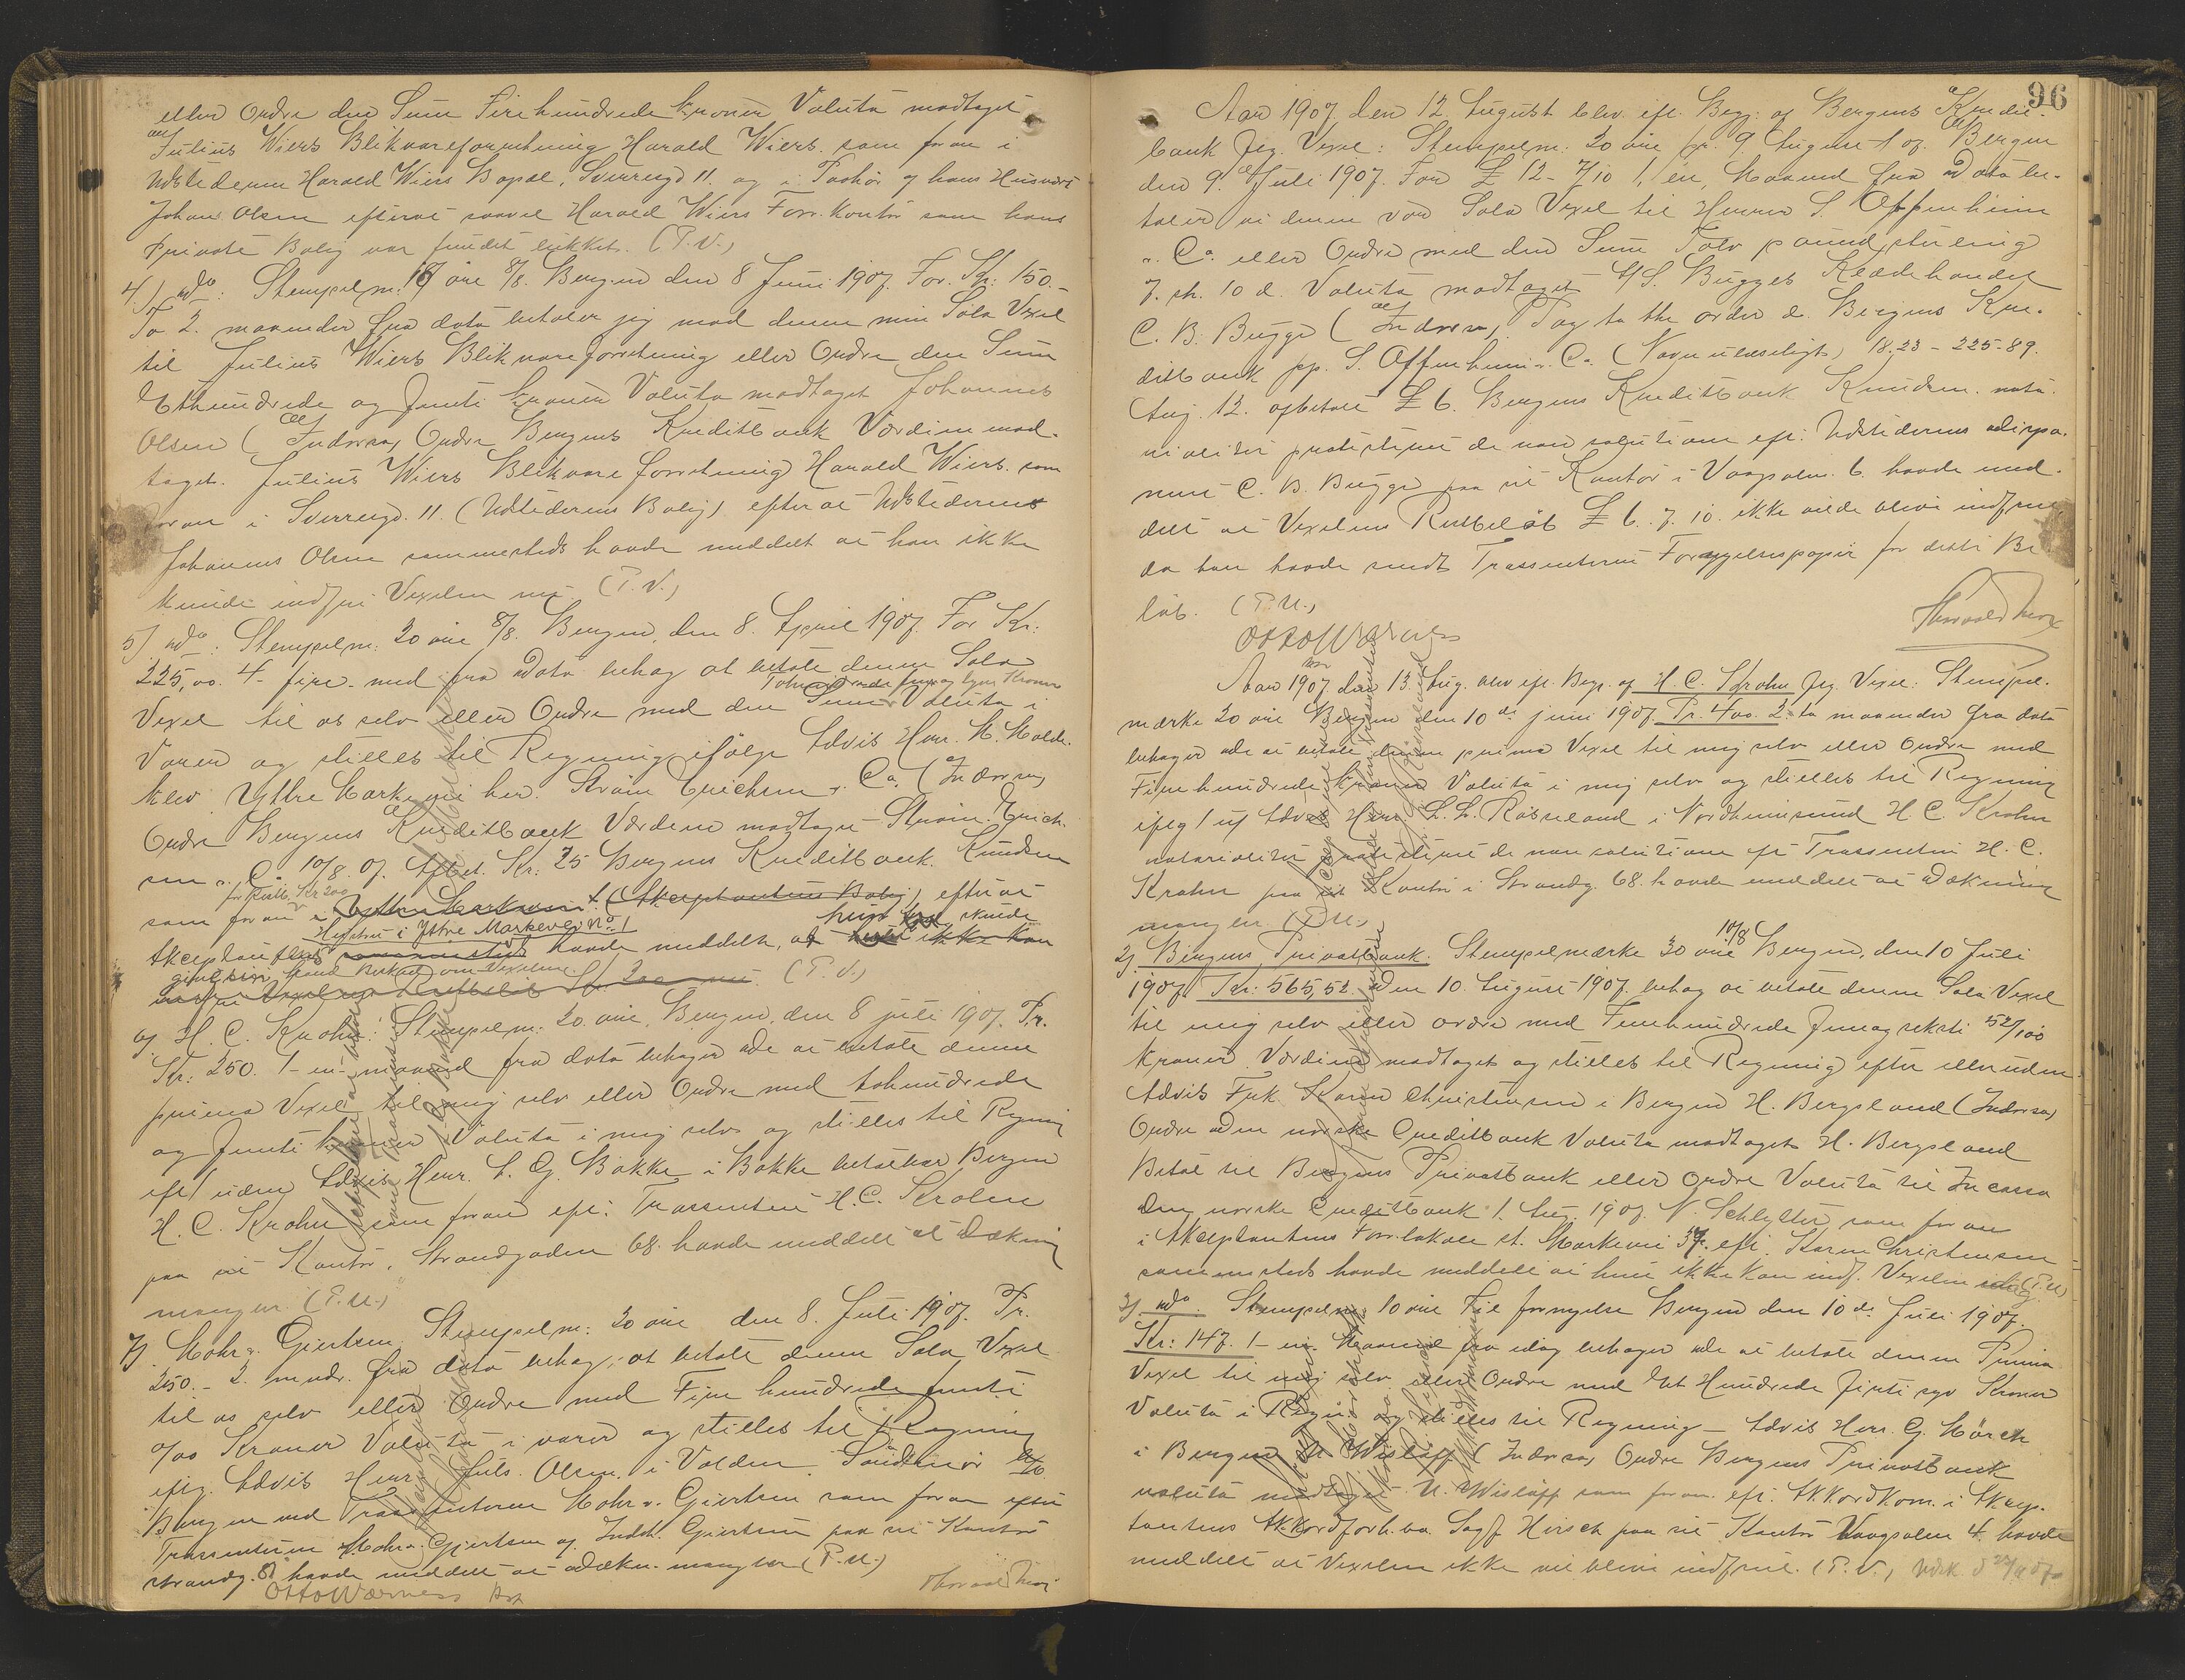 eller Ordre den Sum Firehundrede kroner Valuta modtaget
Julius Wiers Blikvareforretning Harald Wiers. som foran i
Udstederen Harald Wiers Bopæl, Sverresgd 11. og i Paahör af hans Husvært
Johan Olsen efterat saavel Harald Wiers Forr. Kontor som hans
private Bolig var fundet lukket. (P.V.)
4) do: Stempelm. öre 8/8. Bergen den 8 Juni 1907. For Kr: 150.-
To 2. maaneder fra dato betaler jeg mod denne min Sola Vexel
til Julius Wiers Blikvareforretning eller Ordre den Sum
Ethundrede og femti kroner Valuta modtaget Johannes
Olsen (Indorsa) Ordre Bergens Kreditbank Værdien mod-
taget. Julius Wiers Blikvareforretning Harald Wiers. som
foran i Sverresgd. 11. (Udstederens Bolig) efterat Udstederens
Johannes Olsen sammesteds havde meddelt at han ikke
kunde indfri Vexelen nu. (P.V.)
5) do: Stempelm: 20 öre 8/8. Bergen, den 8. April 1907. For Kr:
225,00. 4- fire- mdr fra Dato behag at betale denne Sola
Tohundrede fem og tyve Kroner
Vexel til os selv eller Ordre med den Sum Valuta i
Varer og stilles til Regning ifölge Advis Herr. M. Molde-
klev Ytre Markevei her. Ström Erichsen & Co. (Indorsa)
Ordre Bergens Kreditbank Værdien modtaget Ström. Erich-
sen & Co. 10/8. 07. Afbet. Kr: 25 Bergens Kreditbank. Knudsen
for Restb. Kr 200
som foran i Ytre Markevei 1 (Akceptantens Bolig) efterat
Hustru i Ytre Markevei No 1 hun skulde
Akceptantens sammesteds havde meddelt, at ikke kan
give sin Mand Besked om Vexelen.
indfri Vexelens Restbelöb Kr. 200 nu. (P.V.)
6) H. C. Krohn: Stempelm: 20 öre, Bergen, den 8 juli 1907. Pr.
Kr: 250. 1- en- maaned fra dato behager de at betale denne
prima Vexel til mig selv eller Ordre med tohundrede
og femti kroner Valuta i mig selv og stilles til Regning
eft/ uden Advis Herr. S. G. Bakke i Bakke betalbar Bergen
H. C. Krohn som foran eft: Trassenten H.C. Krohn
paa sit Kontor, Strandgaden 68. havde meddelt at Dækning
mangler. (P.U.)
7) Mohr & Gjertsen Stempelm: 20 öre den 8. Juli 1907. Pr.
250.- 2. mndr. fra dato behag. at betale denne Sola Vexel
til os selv eller Ordre med Fire hundrede femti
0/00 Kroner Valuta i varer og stilles til Regning
iflg. Advis Herr Juls. Olsen. i Volden Söndmör
Bergen ved Trassenterne Mohr & Gjertsen som foran efter
Trassenterne Mohr & Gjertsen og Indeh. Gjertsen paa sit Kontor
Strandg. havde meddelt at dækn. mangler (P.U.)
Otto Wærness
96
Aar 1907 den 12 August blev eft. Beg: af Bergens Kredit-
bank flg. Vexel: Stempelm: 20 öre pr. 9 August 1907. Bergen
den 9. Juli 1907. For £ 12- 7/10 1/ en, Maaned fra Dato be-
taler vi denne vor Sola Vexel til Herrer S. Oppenheim
& Co. eller Ordre med den Sum Tolv pound sterling
7. sh. 10 d. Valuta modtaget A/S. Bugges Klædehandel
C. B. Bugge (Indorsa) Pay to the order de Bergens Kre-
ditbank pp. S. Oppenheim & Co. (Navn ulæseligt) 18.23 - 225-89.
Aug. 12. afbetalt £ 6. Bergens Kreditbank Knudsen. nota-
rialiter protesteret de non solutione eft: Udstederens dispo-
nent C. B. Bugge paa sit Kontor i Vaagsalm. 6. havde med-
delt at Vexelens Restbelöb £ 6. 7. 10. ikke vilde blive indfriet
da han havde sendt Trassenterne Fornyelsespapir for dette Be-
löb. (P.U.)
Otto Wærness
Aar 1907 den 13. Aug. blev eft. Begj. af H. C. Krohn flg. Vexel: Stempel-
mærke 20 öre Bergen den 10de juni 1907. Pr. 400. 2. to maaneder fra dato
behager de at betale denne prima Vexel til mig selv eller Ordre med
Firehundrede Kroner Valuta i mig selv og stilles til Regning
iflg / uf Advis Herr L. L. Röseland i Nordheimsund H. C. Krohn
notarialiter protesteret de non solutione eft Trassenten H. C.
Krohn paa sit Kontor i Strandg. 68. havde meddelt at Dækning
mangler (P.U.)
2) Bergens Privatbank. Stempelmærke 30 öre 10/8 Bergen, den 10 Juli
1907. Kr: 565,52. Den 10. August 1907. behag at betale denne Sola Vexel
til mig selv eller ordre med Femhundrede femogseksti 52/100
Kroner. Værdien modtaget og stilles til Regning efter eller uden
Advis Frk. Karen Christensen i Bergen H. Bergsland (Indorsa)
Ordre Den norske Creditbank Valuta modtaget H. Bergsland
Betal til Bergens Privatbank eller Ordre Valuta til Incasso
Den norske Creditbank 1. Aug. 1907. N. Schlytter, som foran
i Akceptantens Forr. lokale st. Markevei eft. Karen Christensen
sammesteds havde meddelt at hun ikke kan indf. Vexelen idag (P.U)
3) do. Stempelm: 10 öre Til fornyelse Bergen den 10de Juli 1907.
Kr: 147. 1- en. Maaned fra idag behager de at betale denne Prima
Vexel til mig selv eller Ordre med Et Hundrede firti syv Kroner
Valuta i Regn. og stilles til Regning - Advis Herr. G. Mörch
i Bergen N. Wislöff (Indorsa) Ordre Bergens Privatbank
valuta modtaget N. Wislöff som foran. eft. Akkordkom. i Akcep-
tantens Akkordforh. Sagf. Hirsch paa sit Kontor Vaagsalm 4. havde
meddelt at Vexelen ikke vil blive indfriet. (P.V.)